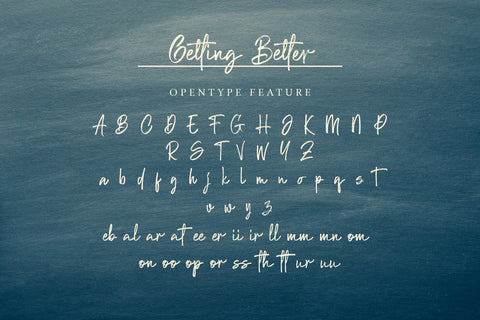 Getting Better
OPENTYPE FEATURE
A B C D E F G H I J K M N P
R S T V W Y Z
a b d f g h j k l m n o p q s t
v w y z
eb al ar at ee er ii ir ll mm mn om
on oo op or ss th tt ur uu